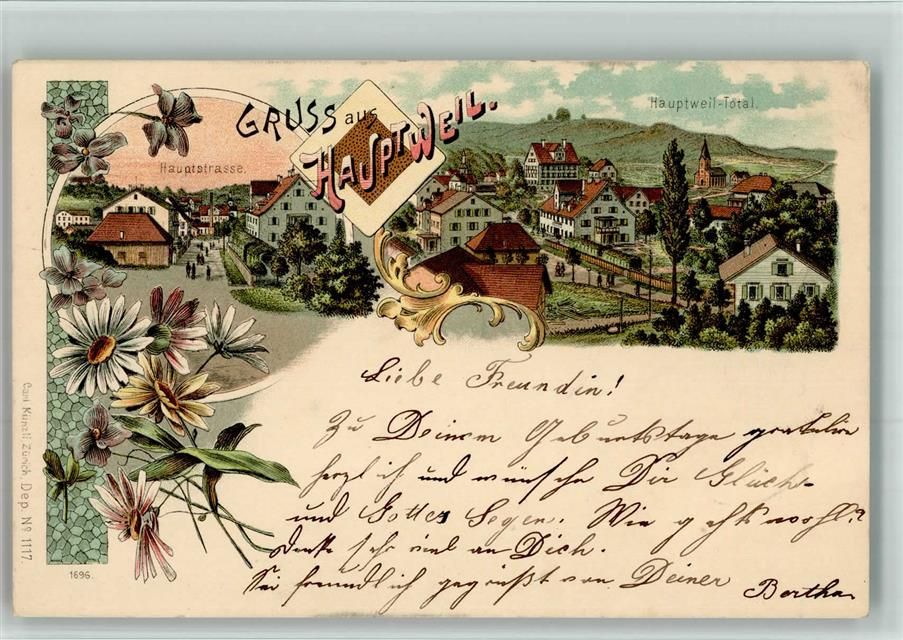 GRUSS aus
HAUPTWEIL.
Hauptweil-Total.
Hauptstrasse.
Liebe Freundin!
Zu Deinem Geburtstage gratulire
herzlich und wünsche Dir Glück-
und Gottes Segen. Wie gehts wohl?
Denke sehr viel an Dich.
Sei freundlich gegrüßt von Deiner
Bertha.
Carl Künzli Zürich, Dep. No 1117.
1696.